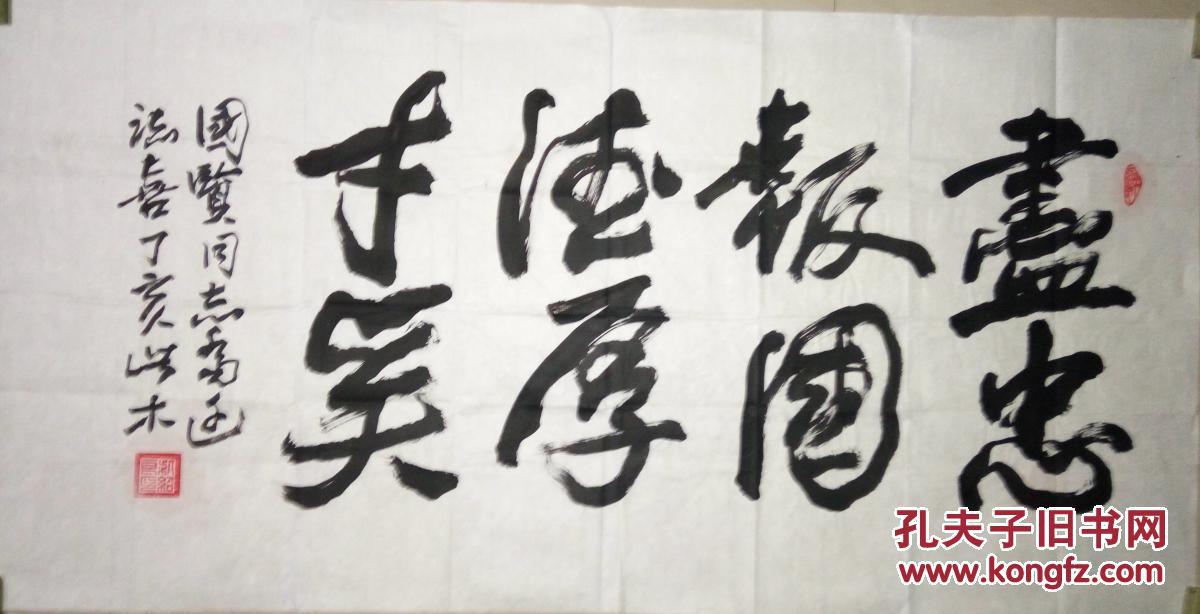 盡忠
報國
德厚
才
國賢同志喬遷
誌喜丁亥木
孔夫子旧书网
www.kongfz.com